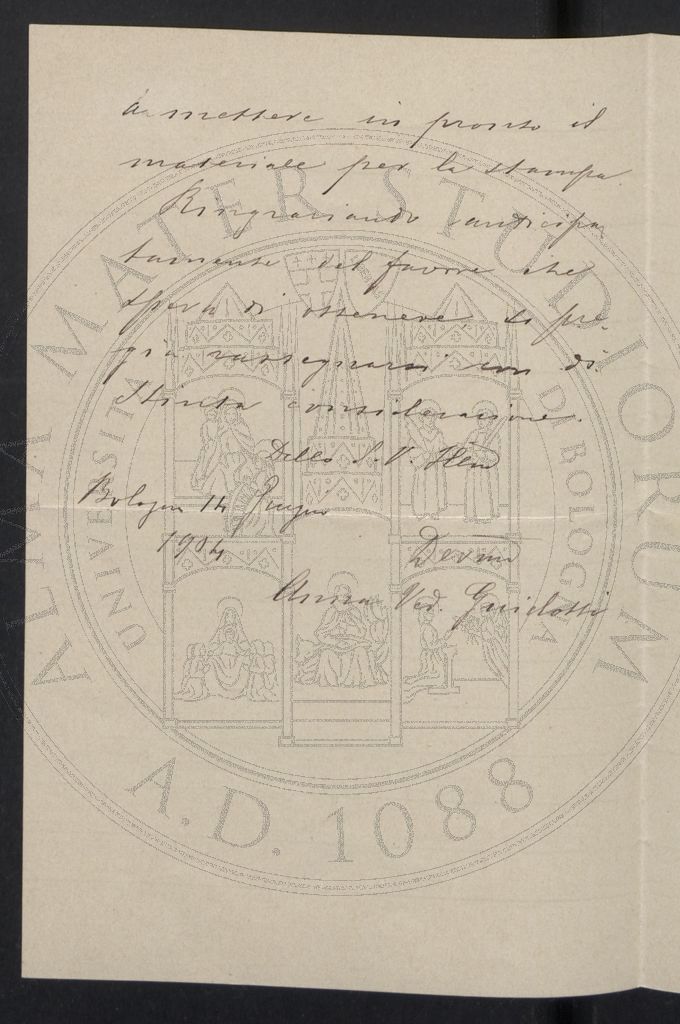 a mettere in pronto il
materiale per la stampa.
Ringraziando anticipa
tamente del favore che
spera di ottenere si pre-
gia rassegnarsi con di-
stinta considerazione.
Della S. V. Illma
Bologna 14 Giugno
1904
Devma
Anna Ved. Guidotti
ALMA MATER STUDIORUM
UNIVERSITÀ DI BOLOGNA
A.D. 1088